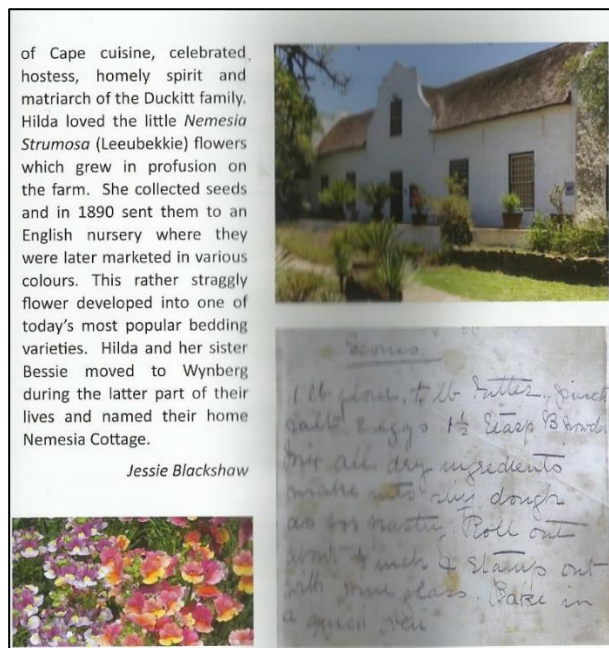 of Cape cuisine, celebrated
hostess, homely spirit and
matriarch of the Duckitt family.
Hilda loved the little Nemesia
Strumosa (Leeubekkie) flowers
which grew in profusion on
the farm. She collected seeds
and in 1890 sent them to an
English nursery where they
were later marketed in various
colours. This rather straggly
flower developed into one of
today's most popular bedding
varieties. Hilda and her sister
Bessie moved to Wynberg
during the latter part of their
lives and named their home
Nemesia Cottage.
Jessie Blackshaw
Scones
1 lb flour, ¼ lb butter, pinch
salt 2 eggs 1½ teasp B Powder
mix all dry ingredients
make into dough
as for pastry. Roll out
about inch & stamp out
with wine glass. Bake in
a quick oven